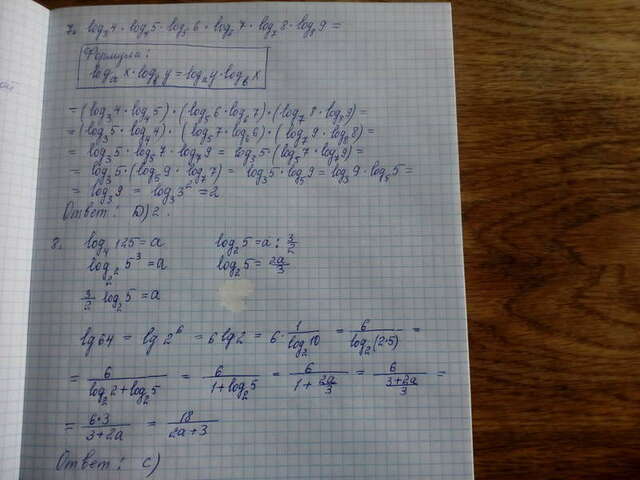 7. log₃4 · log₄5 · log₅6 · log₆7 · log₇8 · log₈9 =
Формула:
logₐx · log_b y = logₐy · log_b x
= (log₃4 · log₄5) · (log₅6 · log₆7) · (log₇8 · log₈9) =
= (log₃5 · log₄4) · (log₅7 · log₆6) · (log₇9 · log₈8) =
= log₃5 · log₅7 · log₇9 = log₃5 · (log₅7 · log₇9) =
= log₃5 · (log₅9 · log₇7) = log₃5 · log₅9 = log₃9 · log₅5 =
= log₃9 = log₃3² = 2
Ответ: D) 2.
8. log₄125 = a log₂5 = a : 3/2
log_2² 5³ = a log₂5 = 2a/3
3/2 log₂5 = a
lg64 = lg2⁶ = 6lg2 = 6 · 1/log₂10 = 6/log₂(2·5) =
= 6/(log₂2 + log₂5) = 6/(1 + log₂5) = 6/(1 + 2a/3) = 6/((3+2a)/3) =
= 6·3/(3+2a) = 18/(2a+3)
Ответ: C)